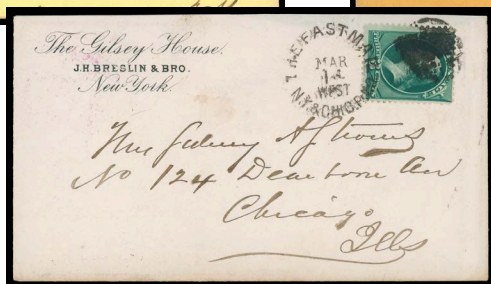 The Gilsey House.
J.H. BRESLIN & BRO.
New York.
THE FAST MAIL
MAR
WEST
N.Y. & CHIC. R.P.O.
No 124 Dearborn Av
Chicago
Ills